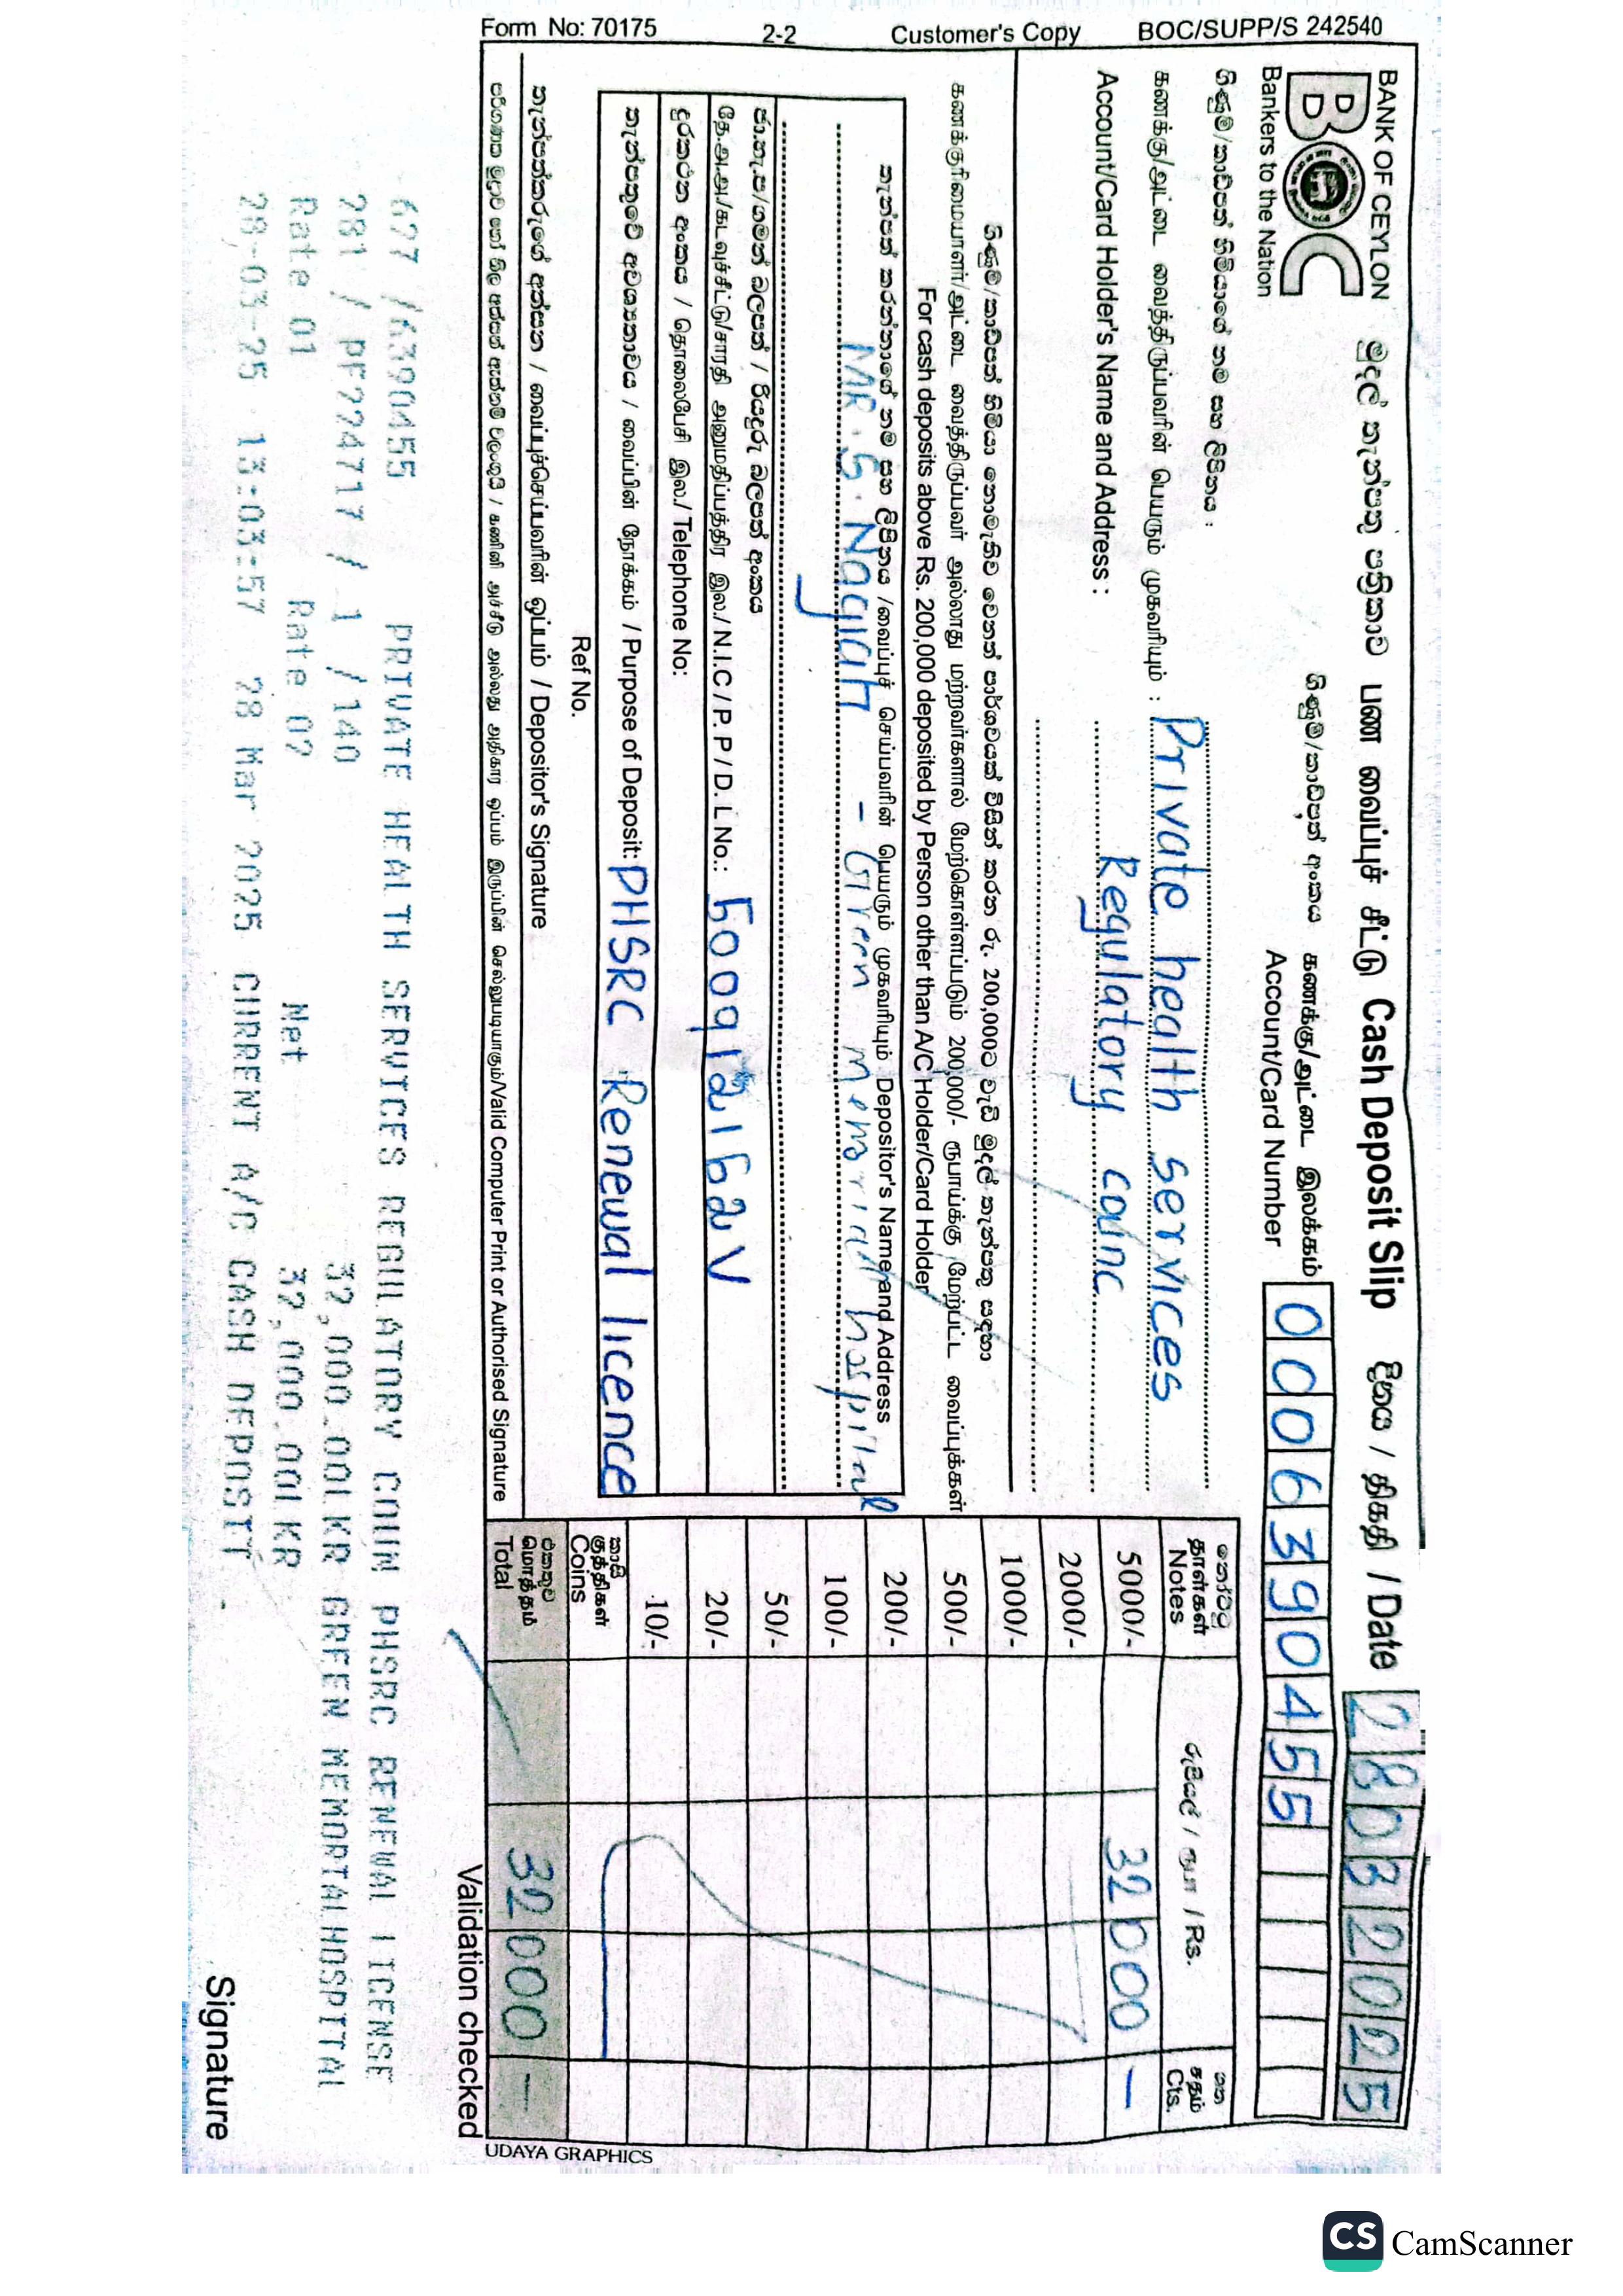 BANK OF CEYLON
BOC
Bankers to the Nation
මුදල් තැන්පතු පත්‍රිකාව பண வைப்புச் சீட்டு Cash Deposit Slip
දිනය / திகதி / Date 28032025
ගිණුම්/කාඩ්පත් අංකය கணக்கு/அட்டை இலக்கம்
Account/Card Number 0006390455
ගිණුම්/කාඩ්පත් හිමියාගේ නම සහ ලිපිනය :
கணக்கு/அட்டை வைத்திருப்பவரின் பெயரும் முகவரியும் : Private health services
Account/Card Holder's Name and Address : Regulatory counc
ගිණුම්/කාඩ්පත් හිමියා නොමැතිව වෙනත් පාර්ශවයක් විසින් කරන රු. 200,000ට වැඩි මුදල් තැන්පතු සඳහා
கணக்குரிமையாளர்/அட்டை வைத்திருப்பவர் அல்லாது மற்றவர்களால் மேற்கொள்ளப்படும் 200,000/- ரூபாய்க்கு மேற்பட்ட வைப்புக்கள்
For cash deposits above Rs. 200,000 deposited by Person other than A/C Holder/Card Holder
තැන්පත් කරන්නාගේ නම සහ ලිපිනය /வைப்புச் செய்பவரின் பெயரும் முகவரியும் Depositor's Name and Address
MR. S. Nagiah - Green memorial hospital
ජා.හැ.ප/ගමන් බලපත් / රියදුරු බලපත් අංකය
தே.அ.அ/கடவுச்சீட்டு/சாரதி அனுமதிப்பத்திர இல./ N.I.C / P. P / D. L No.: 500912162V
දුරකථන අංකය / தொலைபேசி இல./ Telephone No:
තැන්පතුවේ අවශ්‍යතාවය / வைப்பின் நோக்கம் / Purpose of Deposit: PHSRC Renewal licence
Ref No.
තැන්පත්කරුගේ අත්සන / வைப்புச்செய்பவரின் ஒப்பம் / Depositor's Signature
පරිගණක මුද්‍රාව හෝ නිල අත්සන් ඇත්නම් වලංගුයි / கணினி அச்சீடு அல்லது அதிகார ஒப்பம் இருப்பின் செல்லுபடியாகும்/Valid Computer Print or Authorised Signature
නෝට්ටු
தாள்கள்
Notes
රුපියල් / ரூபா / Rs.
ශත
சதம்
Cts.
5000/- 32000 —
2000/-
1000/-
500/-
200/-
100/-
50/-
20/-
10/-
කාසි
குத்திகள்
Coins
එකතුව
மொத்தம்
Total
32000 —
Form No: 70175
2-2
Customer's Copy
BOC/SUPP/S 242540
UDAYA GRAPHICS
Validation checked
677 /6390455 PRIVATE HEALTH SERVICES REGULATORY COUN PHSRC RENEWAL LICENSE
281 / PF224717 / 1 /140 32,000.00LKR GREEN MEMORIALHOSPITAL
Rate 01 Rate 02 Net 32,000.00LKR
28-03-25 13:03:57 28 Mar 2025 CURRENT A/C CASH DEPOSIT
Signature
CS CamScanner